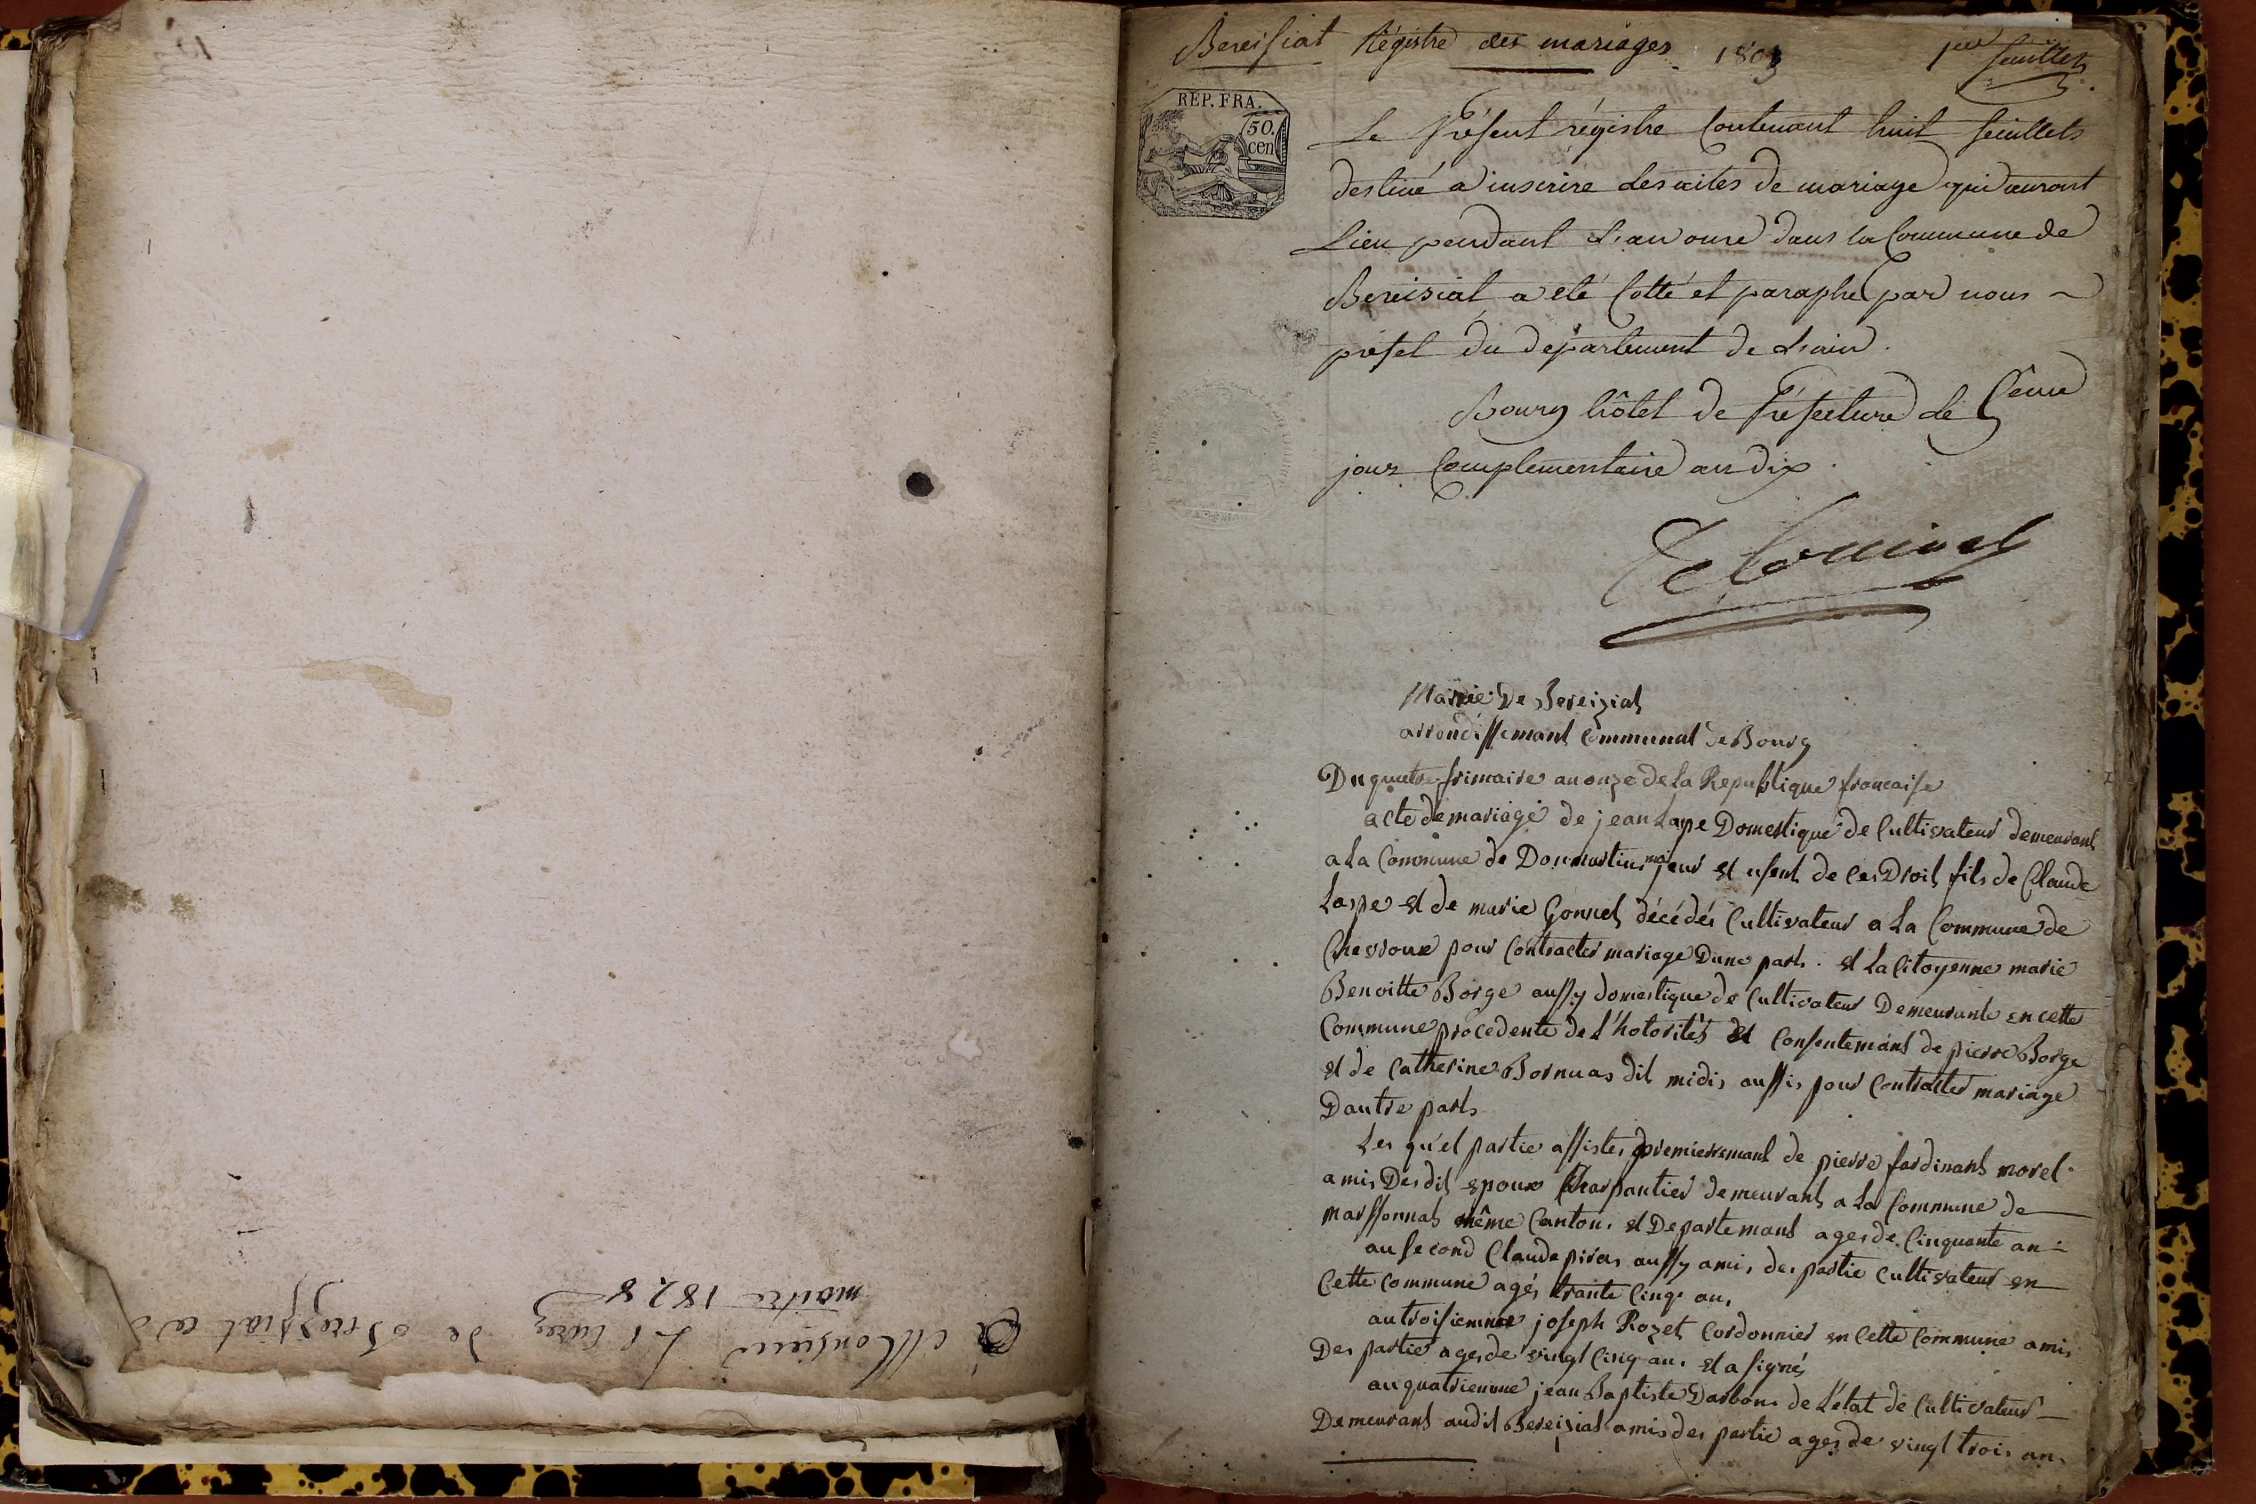 Bereisiat Régistre des mariages 1803 1er feuillet
REP. FRA.
50.
cen
Le Présent régistre Contenant huit feuillets
destiné a inscrire les actes de mariage qui auront
Lieu pendant l'an onze dans la Commune de
Bereisiat a été Cotté et paraphé par nous
préfet du département de L'ain.
Bourg hôtel de Préfecture le 5eme
jour Complementaire an dix.
Mairie De Bereiziat
arrondissemant Communal de Bourg
Du quatre frimaire an onze de La Republique francaise
acte de mariage de jean Laspe Domestique de Cultivateur demeurant
a La Commune de Donmartin majeur et usent de ces Droit fils de Claude
Laspe et de marie Gonnet décédés Cultivateur a La Commune de
Chevroux pour Contracter mariage Dune part. et La Citoyenne marie
Benoitte Borge aussy domestique de Cultivateur Demeurante en cette
Commune procedente de L'hotorités et Consentemant de pierre Borge
et de Catherine Bornuas dit midis aussis pour Contracter mariage
Dautre part
Les qu'el partie assistes premierremant de pierre fardinant morel
amis Des dit epoux Charpantier demeurant a La Commune de
marssonnas même Canton et Departemant ages de Cinquante an
au second Claude piron aussy amis des partie Cultivateur en
Cette commune agés trante Cinq ans
au troisiemme joseph Rozet Cordonnier en Cette Commune amis
Des partie ages de vingt Cinq ans et a signés
au quatriemme jean Baptiste Darbon de L'état de Cultivateur
Demeurant au dit Bereiziat amis des partie ages de vingt trois an
A Monsieur Le Curez de Bereyziat ce
maitre 1828